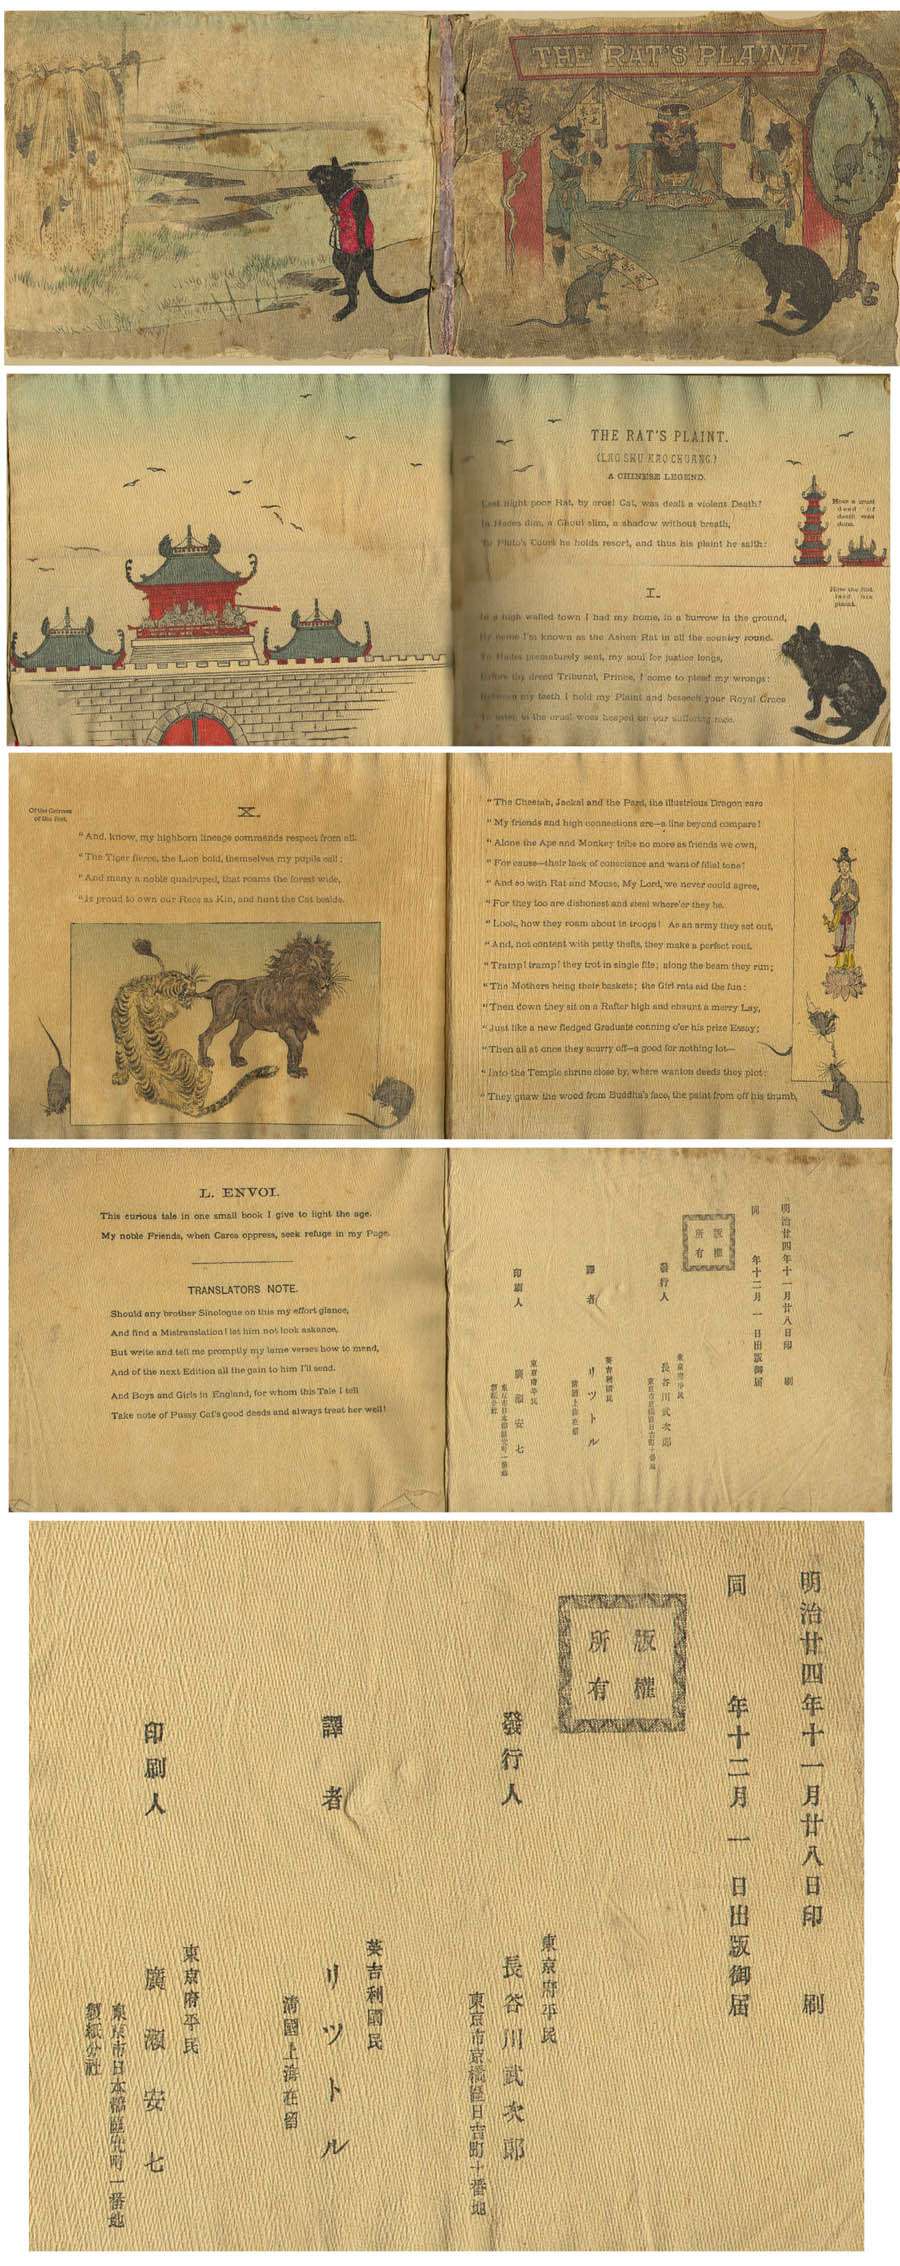 THE RAT'S PLAINT
THE RAT'S PLAINT.
(LAO SHU KAO CHUANG)
A CHINESE LEGEND.
Last night poor Rat, by cruel Cat, was dealt a violent Death!
In Hades dim, a Ghoul slim, a shadow without breath,
To Pluto's Court he holds resort, and thus his plaint he saith:
How a cruel
deed of
death was
done.
I.
How the Rat
laid his
plaint.
In a high walled town I had my home, in a burrow in the ground,
By name I'm known as the Ashen Rat in all the country round.
To Hades prematurely sent, my soul for justice longs,
Before thy dread Tribunal, Prince, I come to plead my wrongs:
Between my teeth I hold my Plaint and beseech your Royal Grace
To listen to the cruel woes heaped on our suffering race.
Of the Greatness
of the Cat.
X.
"And, know, my highborn lineage commends respect from all.
"The Tiger fierce, the Lion bold, themselves my pupils call;
"And many a noble quadruped, that roams the forest wide,
"Is proud to own our Race as Kin, and hunt the Cat beside.
"The Cheetah, Jackal and the Pard, the illustrious Dragon rare
"My friends and high connections are—a line beyond compare!
"Alone the Ape and Monkey tribe no more as friends we own,
"For cause—their lack of conscience and want of filial tone!
"And so with Rat and Mouse, My Lord, we never could agree,
"For they too are dishonest and steal where'er they be.
"Look, how they roam about in troops! As an army they set out,
"And, not content with petty thefts, they make a perfect rout.
"Tramp! tramp! they trot in single file; along the beam they run;
"The Mothers bring their baskets; the Girl rats aid the fun:
"Then down they sit on a Rafter high and chaunt a merry Lay,
"Just like a new fledged Graduate conning o'er his prize Essay;
"Then all at once they scurry off—a good for nothing lot—
"Into the Temple shrine close by, where wanton deeds they plot:
"They gnaw the wood from Buddha's face, the paint from off his thumb,
L. ENVOI.
This curious tale in one small book I give to light the age.
My noble Friends, when Cares oppress, seek refuge in my Page.
TRANSLATORS NOTE.
Should any brother Sinologue on this my effort glance,
And find a Mistranslation! let him not look askance,
But write and tell me promptly my lame verses how to mend,
And of the next Edition all the gain to him I'll send.
And Boys and Girls in England, for whom this Tale I tell
Take note of Pussy Cat's good deeds and always treat her well!
明治廿四年十一月廿八日印刷
同年十二月一日出版御届
版權
所有
發行人
東京府平民
長谷川武次郎
東京市京橋區日吉町十番地
譯者
英吉利國民
リツトル
清國上海在留
印刷人
東京府平民
廣瀬安七
東京市日本橋區兜町一番地
製紙分社
明治廿四年十一月廿八日印刷
同年十二月一日出版御届
版權
所有
發行人
東京府平民
長谷川武次郎
東京市京橋區日吉町十番地
譯者
英吉利國民
リツトル
清國上海在留
印刷人
東京府平民
廣瀬安七
東京市日本橋區兜町一番地
製紙分社